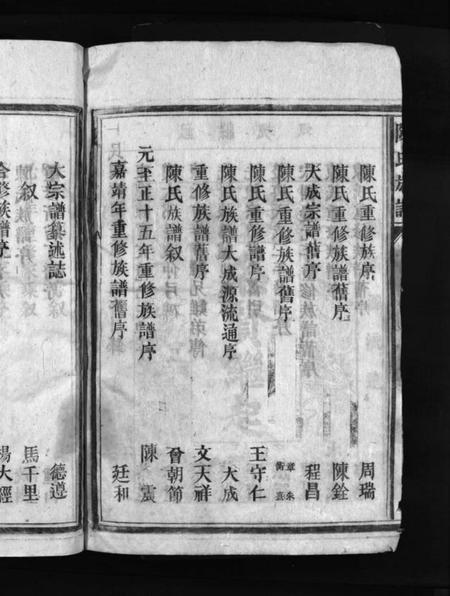 陳氏族譜
陳氏重修族序 周瑞
陳氏重修族譜舊序 陳銓
大成宗譜舊序 程昌
陳氏重修族譜舊序 朱熹
陳氏重修譜序 王守仁
陳氏族譜大成源流通序 大成
重修族譜舊序 文天祥
陳氏族譜叙 晉朝節
元至正十五年重修族譜序 陳震
嘉靖年重修族譜舊序 廷和
大宗譜纂述誌 德遵
叙 馬千里
合修族譜序 楊大經